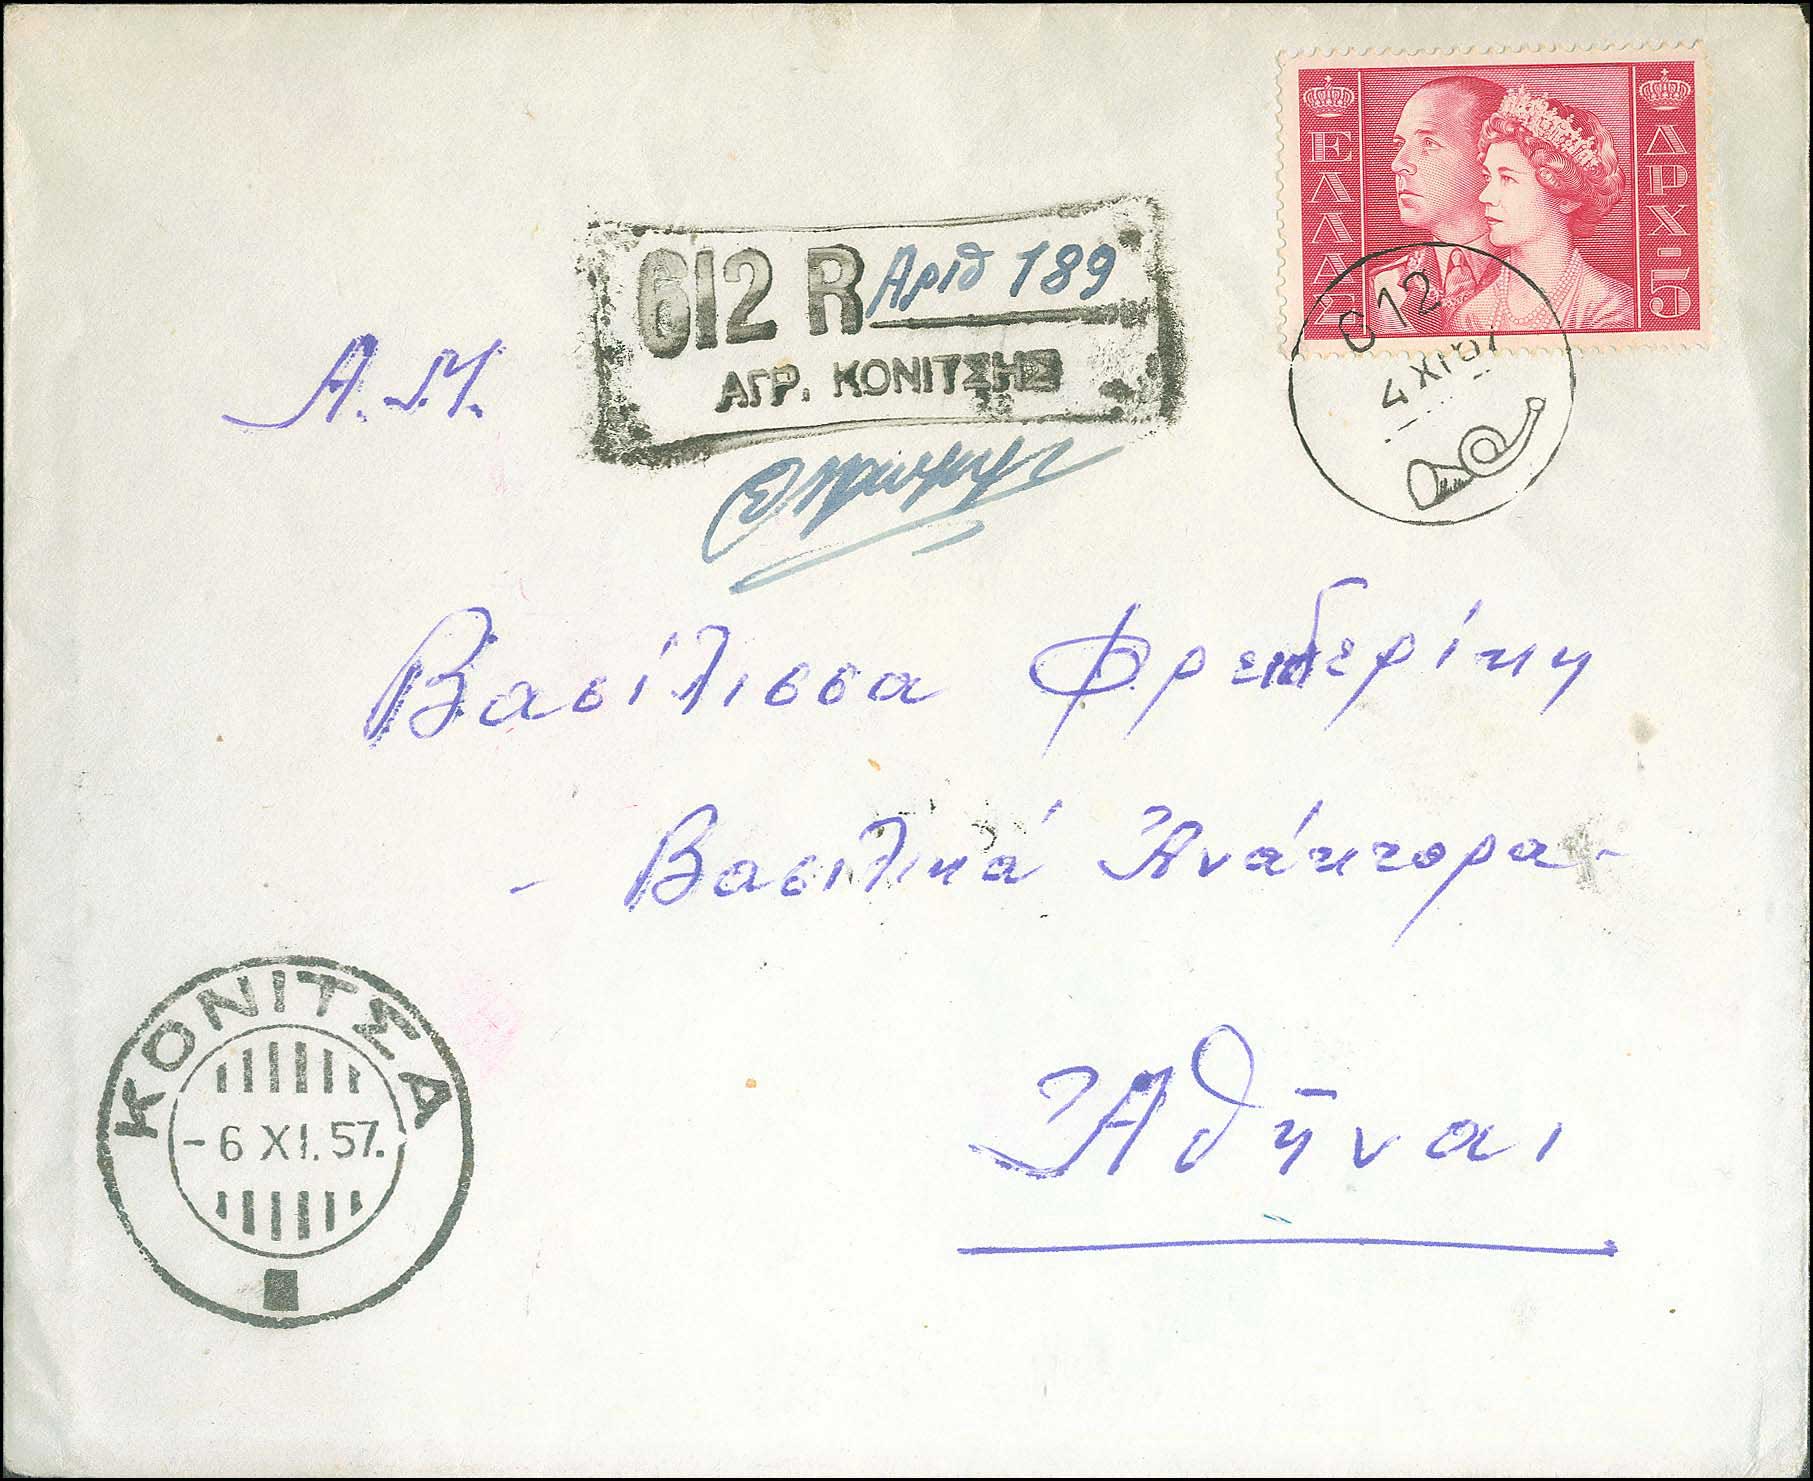 ΕΛΛΑΣ
ΔΡΧ-5
612 R Αριθ 189
ΑΓΡ. ΚΟΝΙΤΣΗΣ
612
4 XI 57
Α.Μ.
Βασίλισσα Φρειδερίκη
- Βασιλικά Ἀνάκτορα -
Ἀθῆναι
ΚΟΝΙΤΣΑ
-6 XI. 57.